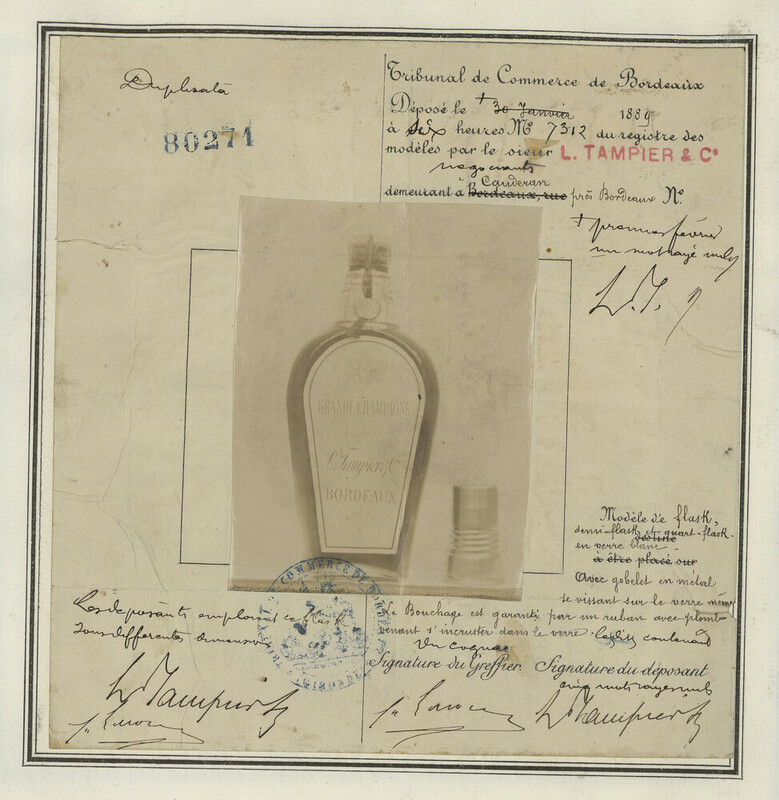 Duplicata
80271
Tribunal de Commerce de Bordeaux
Déposé le + 30 Janvier 1889
à dix heures No 7312 du registre des
modèles par le sieur L. TAMPIER & Co
négociants
Cauderan
demeurant à Bordeaux, rue près Bordeaux No.
+ premier février
un mot rayé nul
L. T.
GRANDE CHAMPAGNE
L. Tampier & Co
BORDEAUX
Modèle de flask,
demi-flask et quart-flask
destiné
en verre blanc
à être placé sur
Avec gobelet en métal
se vissant sur le verre même
Les déposants emploient ce flask
Le Bouchage est garanti par un ruban avec plomb
sous différentes dimensions
venant s'incruster dans le verre. Lesdits contenant
du cognac
TRIBUNAL DE COMMERCE DE BORDEAUX
(GIRONDE)
Signature du Greffier. Signature du déposant
cinq mots rayés nuls
L. Tampier & Co
L. Tampier & Co